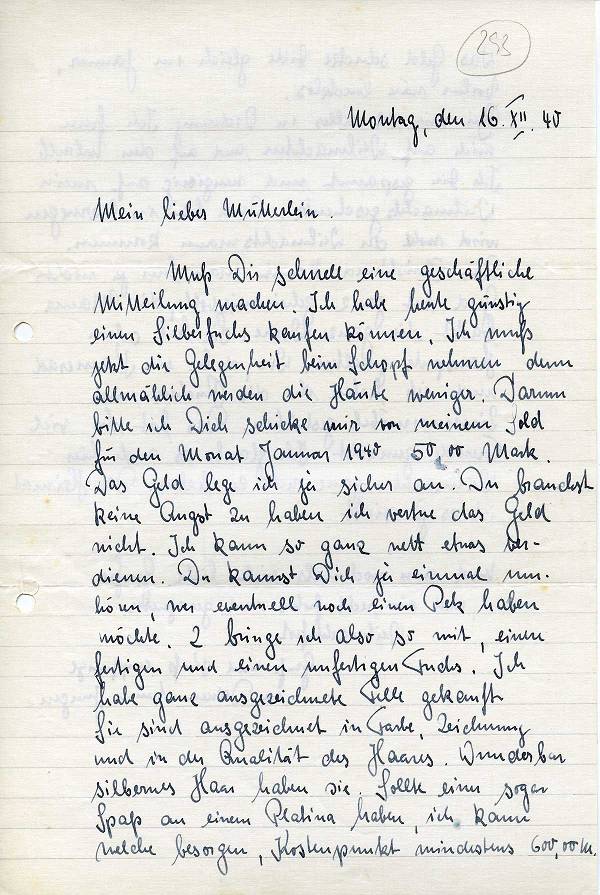 253
Montag, den 16. XII. 40
Mein liebes Mütterlein.
Muß Dir schnell eine geschäftliche
Mitteilung machen. Ich habe heute günstig
einen Silberfuchs kaufen können. Ich muß
jetzt die Gelegenheit beim Schopf nehmen denn
allmählich werden die Häute weniger. Darum
bitte ich Dich schicke mir von meinem Sold
für den Monat Januar 1940 50,00 Mark.
Das Geld lege ich ja sicher an. Du brauchst
keine Angst zu haben ich vertue das Geld
nicht. Ich kann so ganz nett etwas ver-
dienen. Du kannst Dich ja einmal um-
hören, wer eventuell noch einen Pelz haben
möchte. 2 bringe ich also so mit, einen
fertigen und einen unfertigen Fuchs. Ich
habe ganz ausgezeichnete Felle gekauft
Sie sind ausgezeichnet in Farbe, Zeichnung
und in der Qualität des Haares. Wunderbar
silbernes Haar haben sie. Sollte einer sogar
Spaß an einem Platina haben, ich kann
welche besorgen, Kostenpunkt mindestens 600,00 M.